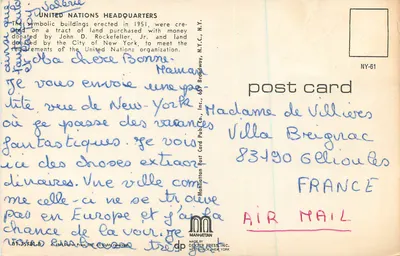 UNITED NATIONS HEADQUARTERS
The symbolic buildings erected in 1951, were cre-
on a tract of land purchased with money
donated by John D. Rockefeller, Jr. and land
by the City of New York, to meet the
of the United Nations organization.
Ma chère Bonne-
Maman
Je vous envoie une pe
tite vue de New-York
où je passe des vacances
fantastiques. Je vois
ici des choses extraor
dinaires. Une ville com
me celle-ci ne se trouve
pas en Europe et j'ai la
chance de la voir. Je
vous embrasse très
Valérie
Manhattan Post Card Pub. Co., Inc. Broadway, N.Y.C., N.Y.
MANHATTAN
MADE BY
dp
NY-61
post card
Madame de Villiers
Villa Breignac
83190 Ollioules
FRANCE
AIR MAIL